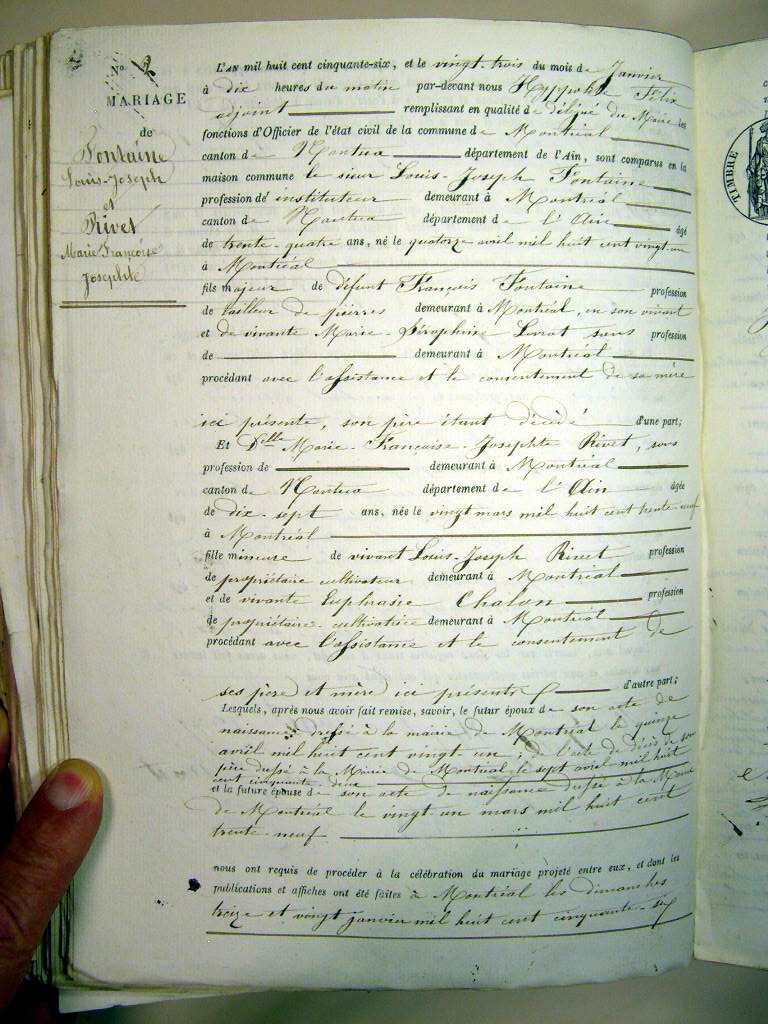 N.o 2
MARIAGE
de
Fontaine
Louis-Joseph
et
Rivet
Marie Françoise
Josephte
L'AN mil huit cent cinquante-six, et le vingt-trois du mois de Janvier
à dix heures du matin par-devant nous Hyppolite Félix
adjoint remplissant en qualité de délégué du Maire les
fonctions d'Officier de l'état civil de la commune de Montréal
canton de Nantua département de l'Ain, sont comparus en la
maison commune le sieur Louis-Joseph Fontaine
profession de instituteur demeurant à Montréal
canton de Nantua département de l'Ain âgé
de trente-quatre ans, né le quatorze avril mil huit cent vingt-un
à Montréal
fils majeur de défunt François Fontaine profession
de tailleur de pierres demeurant à Montréal, en son vivant
et de vivante Marie-Séraphine sans profession
de demeurant à Montréal
procédant avec l'assistance et le consentement de sa mère
ici présente, son père étant décédé d'une part;
Et Delle Marie-Françoise-Josephte Rivet, sans
profession de demeurant à Montréal
canton de Nantua département de l'Ain âgée
de dix-sept ans, née le vingt mars mil huit cent trente-neuf
à Montréal
fille mineure de vivant Louis-Joseph Rivet profession
de propriétaire cultivateur demeurant à Montréal
et de vivante Euphrasie Chalon profession
de propriétaire cultivatrice demeurant à Montréal
procédant avec l'assistance et le consentement de
ses père et mère ici présents d'autre part;
Lesquels, après nous avoir fait remise, savoir, le futur époux de son acte de
naissance dressé à la mairie de Montréal le quinze
avril mil huit cent vingt un de l'acte de décès de son
père dressé à la Mairie de Montréal le sept avril mil huit
cent cinquante deux
et la future épouse de son acte de naissance dressé à la Mairie
de Montréal le vingt-un mars mil huit cent
trente-neuf
nous ont requis de procéder à la célébration du mariage projeté entre eux, et dont les
publications et affiches ont été faites à Montréal les dimanches
treize et vingt janvier mil huit cent cinquante-six
TIMBRE